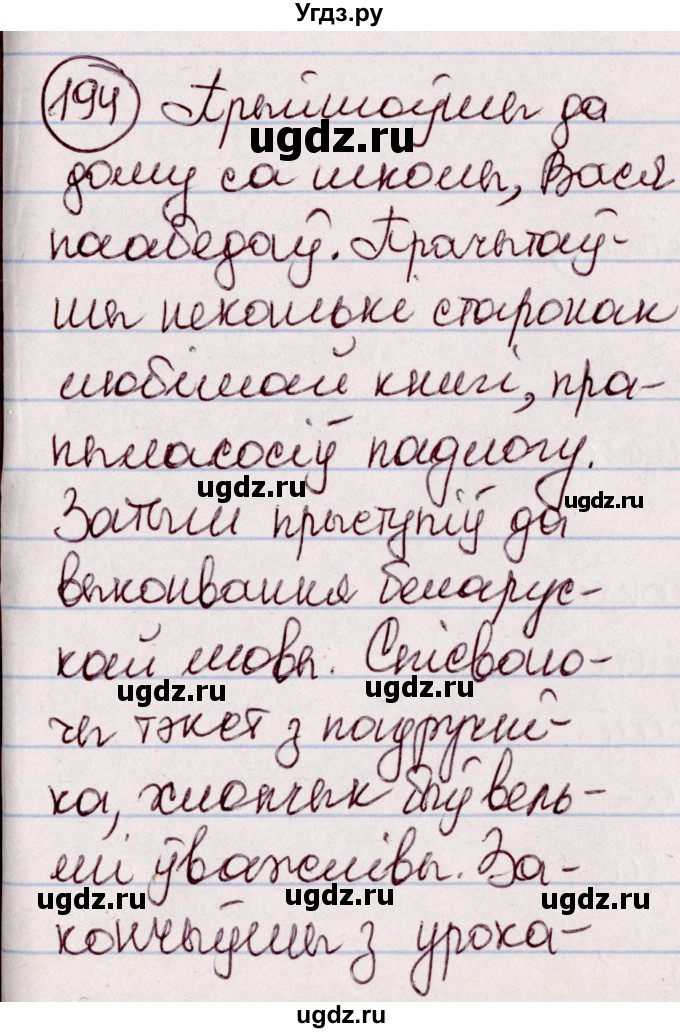 Угдз.ру
194 Прыйшоўшы да
дому са школы, Вася
паабедаў. Прачытаў-
шы некалькі старонак
любімай кнігі, пра-
пыласосіў падлогу.
Затым прыступіў да
выконвання беларус-
кай мовы. Спісваю-
чы тэкст з падручні-
ка, хлопчык быў вель-
мі ўважлівы. За-
кончыўшы з урока-
ugdz.ru
ugdz.ru
ugdz.ru
ugdz.ru
ugdz.ru
ugdz.ru
ugdz.ru
ugdz.ru
ugdz.ru
ugdz.ru